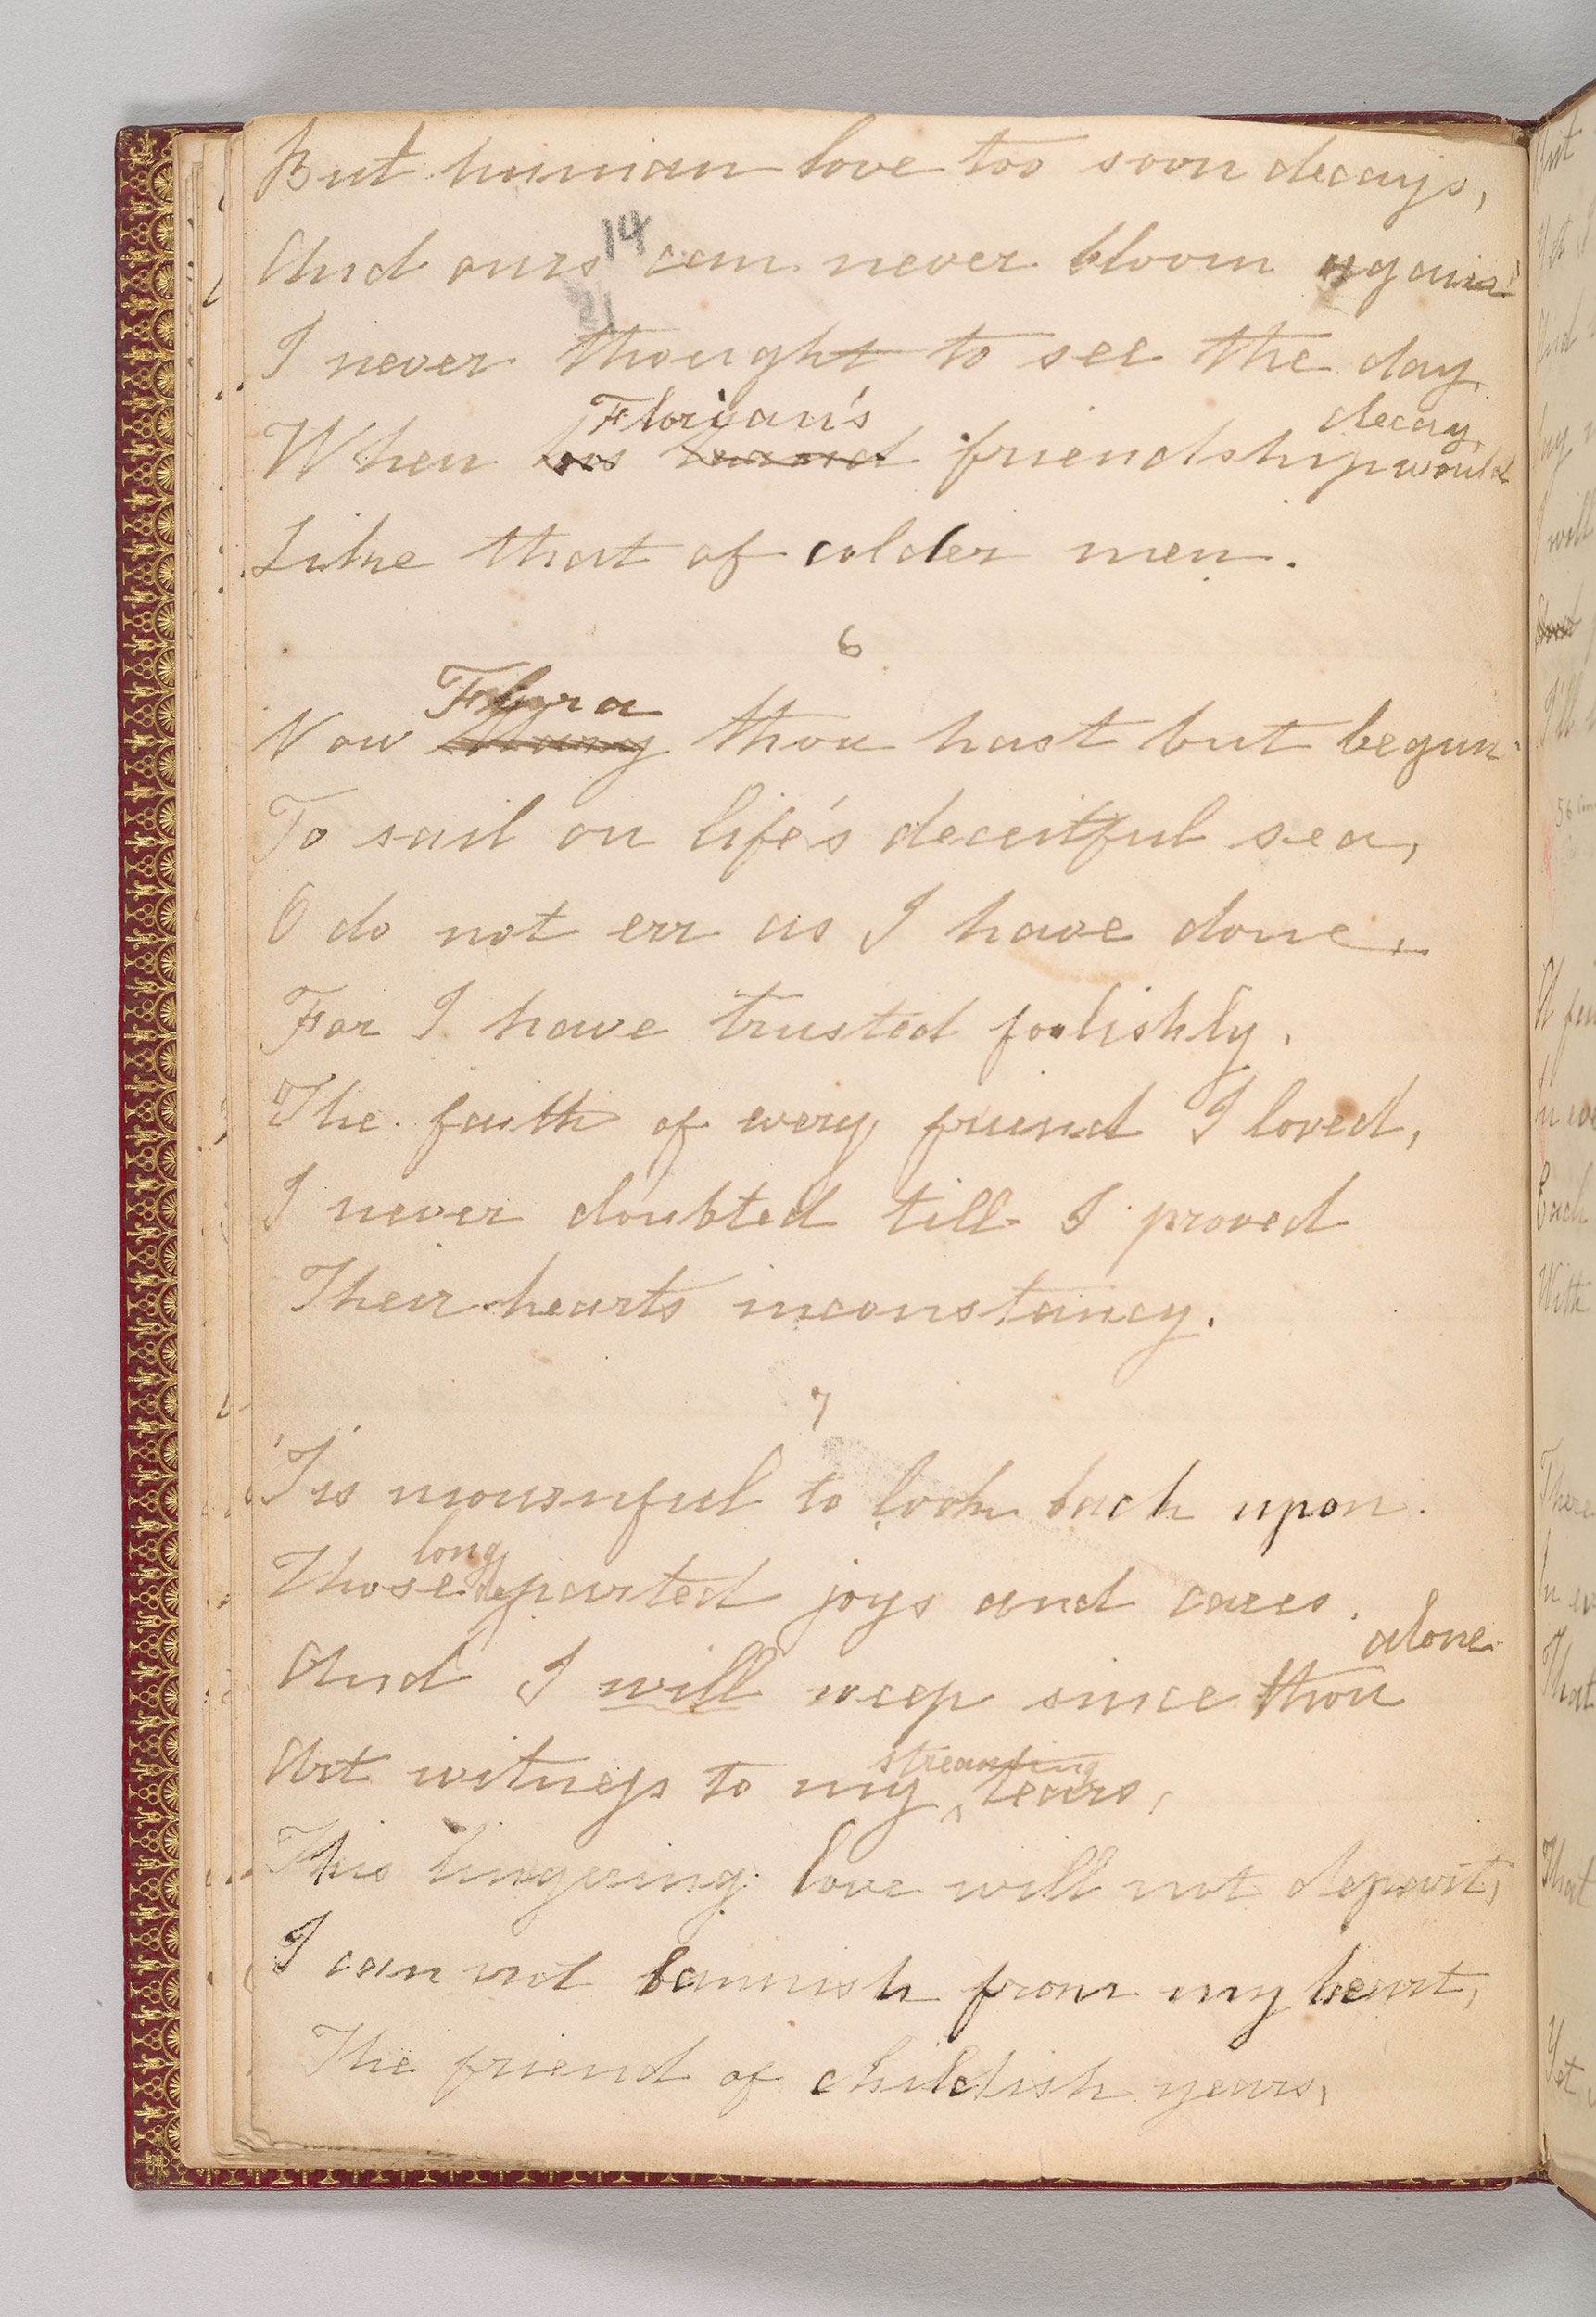 But human love too soon decays,
And ours can never bloom again
14
21
I never thought to see the day
Florian's decay,
When friendship would
Like that of colder men.
6
Flora
Now Mary thou hast but begun
To sail on life's deceitful sea,
O do not err as I have done,
For I have trusted foolishly.
The faith of every friend I loved,
I never doubted till I proved
Their hearts inconstancy.
7
'Tis mournful to look back upon
long
Those departed joys and cares
alone
And I will weep since thou
streaming
Art witness to my ^ tears,
This lingering love will not depart,
I cannot bannish from my heart,
The friend of childish years,